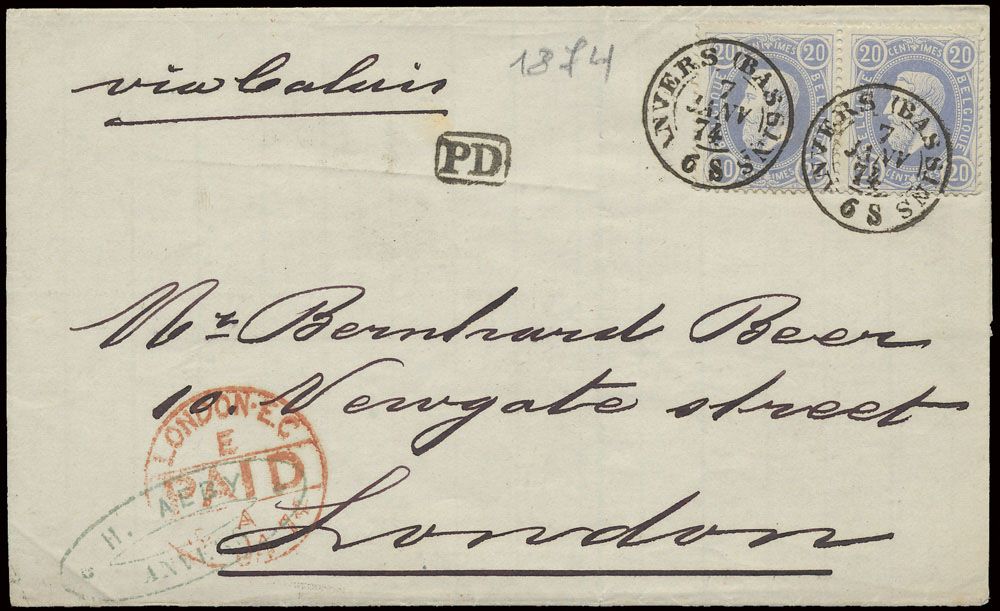 via Calais
1874
PD
20 CENTIMES 20
BELGIQUE
20 CENTIMES 20
BELGIQUE
ANVERS (BASSINS)
7
JANV
74
6 S
ANVERS (BASSINS)
7
JANV
74
6 S
Mr Bernhard Beer
10. Newgate street
London
LONDON·E.C
E
PAID
H. ALBY